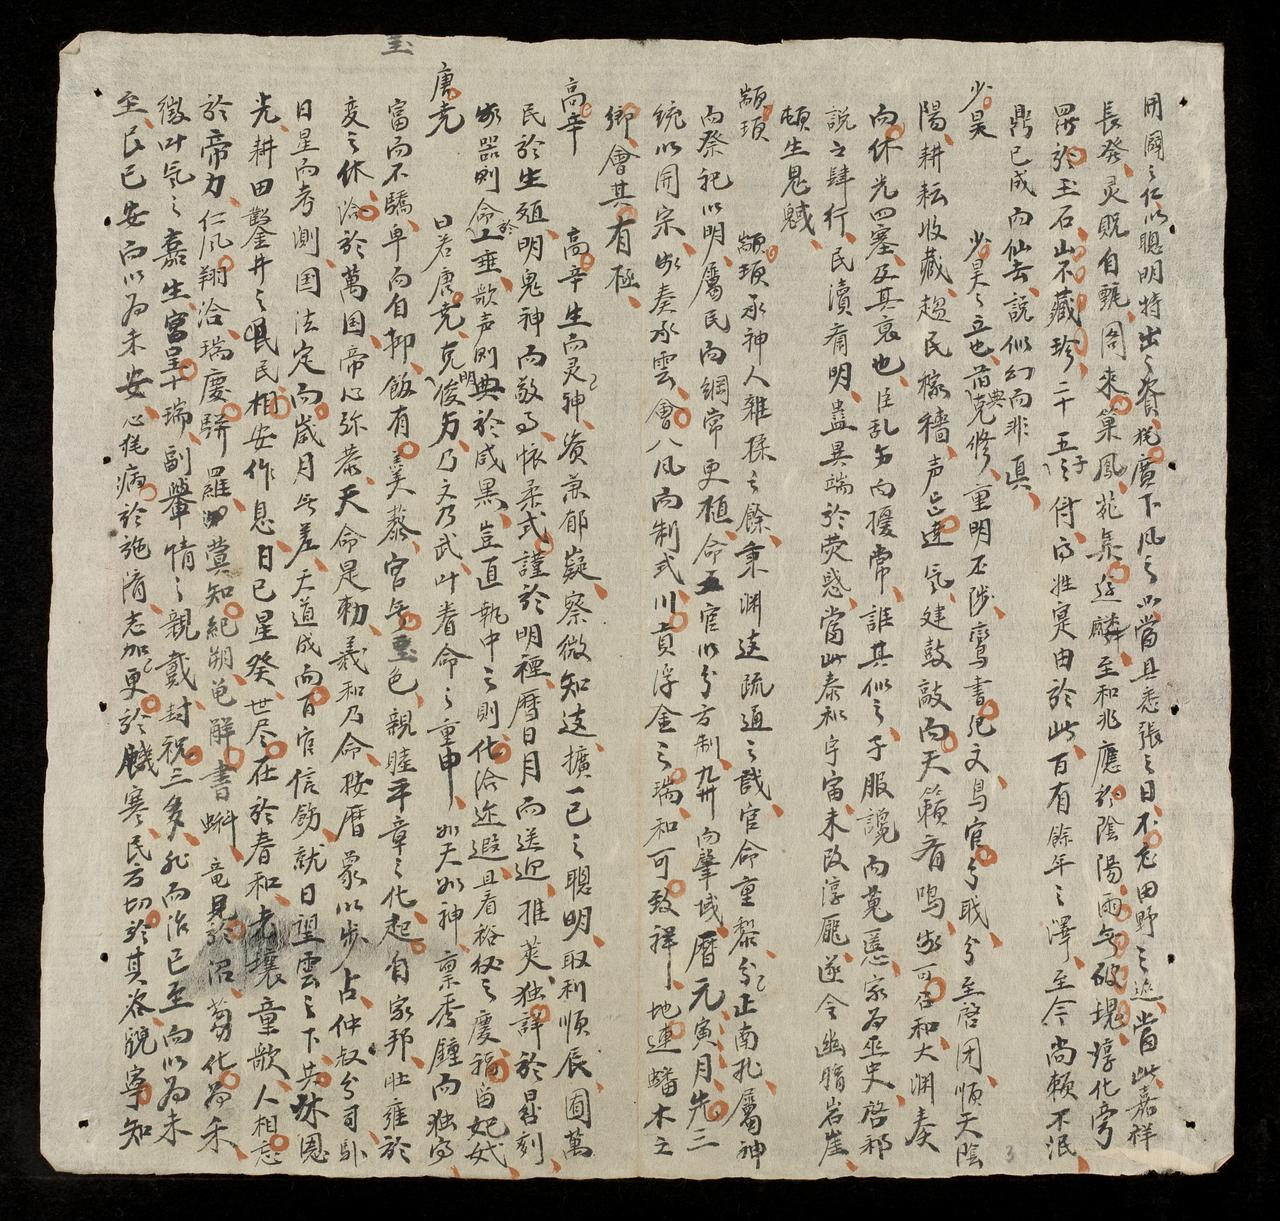 開國之仁以聰明特出之資孰廣下風之以當且悉張之日不忘田野之遊當此嘉祥
長發灵貺自甄阁来巢鳳苑無逰麟至和兆應於陰陽雨無破塊淳化旁
昇於玉石山不藏珍二十五子得万姓寔由於此百有餘年之澤至今尚頼不泯
鼎已成而仙去説似幻而非真
少昊　少昊之立也克修重明丕陟鸞書紀文鳥官分职分至啓闭順天陰
陽耕耘收藏趨民稼穡声忘違氣建鼓敲而天籟有鳴歌可召和大渊奏
而休光四塞及其衰也臣乱为而擾常誰其似之子服讒而蒐慝家为巫史啓祁
説之肆行民瀆齊明蠱異端於荧惑當此泰和宇宙未改淳厖遂令幽暗岩崖
頓生鬼魊
顓頊　顓頊承神人雜揉之餘秉渊逺疏通之哉官命重黎分正南北屬神
而祭祀以明屬民而綱常更植命五官以分方制九卅而肇域曆元寅月先三
統以開宗歌奏承雲會八风而制式川貢浮金之瑞和可致祥地連蟠木之
鄉會其有極
高辛　高辛生而灵神资兼郁嶷察微知逺擴一己之聰明取利順辰囿萬
民於生殖明鬼神而敬事懷柔式謹於明禋曆日月而送迎推筴独詳於晷刻
歌器則命於工垂歌声則典於咸黑豈直執中之則化洽迩遐且看裕後之慶福留妃娀
唐尭　曰若唐尭克明俊为乃文乃武叶眷命之重申如天如神禀秀鍾而独富
富而不驕卑而自抑飯有羹藜宫無堊色親睦平章之化起自家邦壮雍於
変之休洽於萬国帝心弥恭天命是勑羲和乃命按曆象以步占仲叔分司馭
日星而考測国法定而歲月無差天道成而百官信飭就日望雲之下共沐恩
光耕田鑿井之氓民相安作息日已星癸世尽在於春和老壤童歌人相忘
於帝力仁风翔洽瑞慶駢羅蓂知紀朔苋解書蝌竜見於沼蒭化为禾
徵叶氣之嘉生富呈十瑞副輦情之親戴封祝三多孔而治已至而以为未
至民已安而以为未安心孰病於施済志加更於饑寒民方切於其咨覩寧知